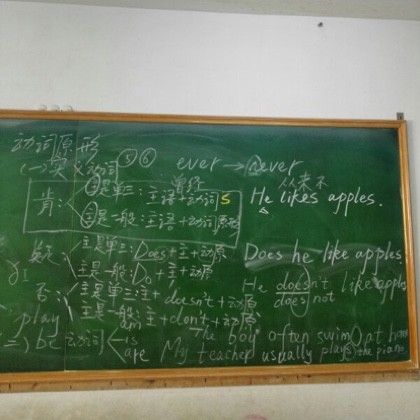 动词原形
(一)实义动词 ⑤⑥ ever → never
曾经 从来不
肯: 主是单三: 主语+动词s He likes apples.
主是一般: 主语+动词原形
疑: 主是单三: Does+主+动原 Does he like apples
主是一般: Do+主+动原
否: 主是单三: 主+doesn't+动原 He doesn't like apples
does not
主是一般: 主+don't+动原
play
二) be 动词 am is are The boy often swim at
My teacher usually plays the piano